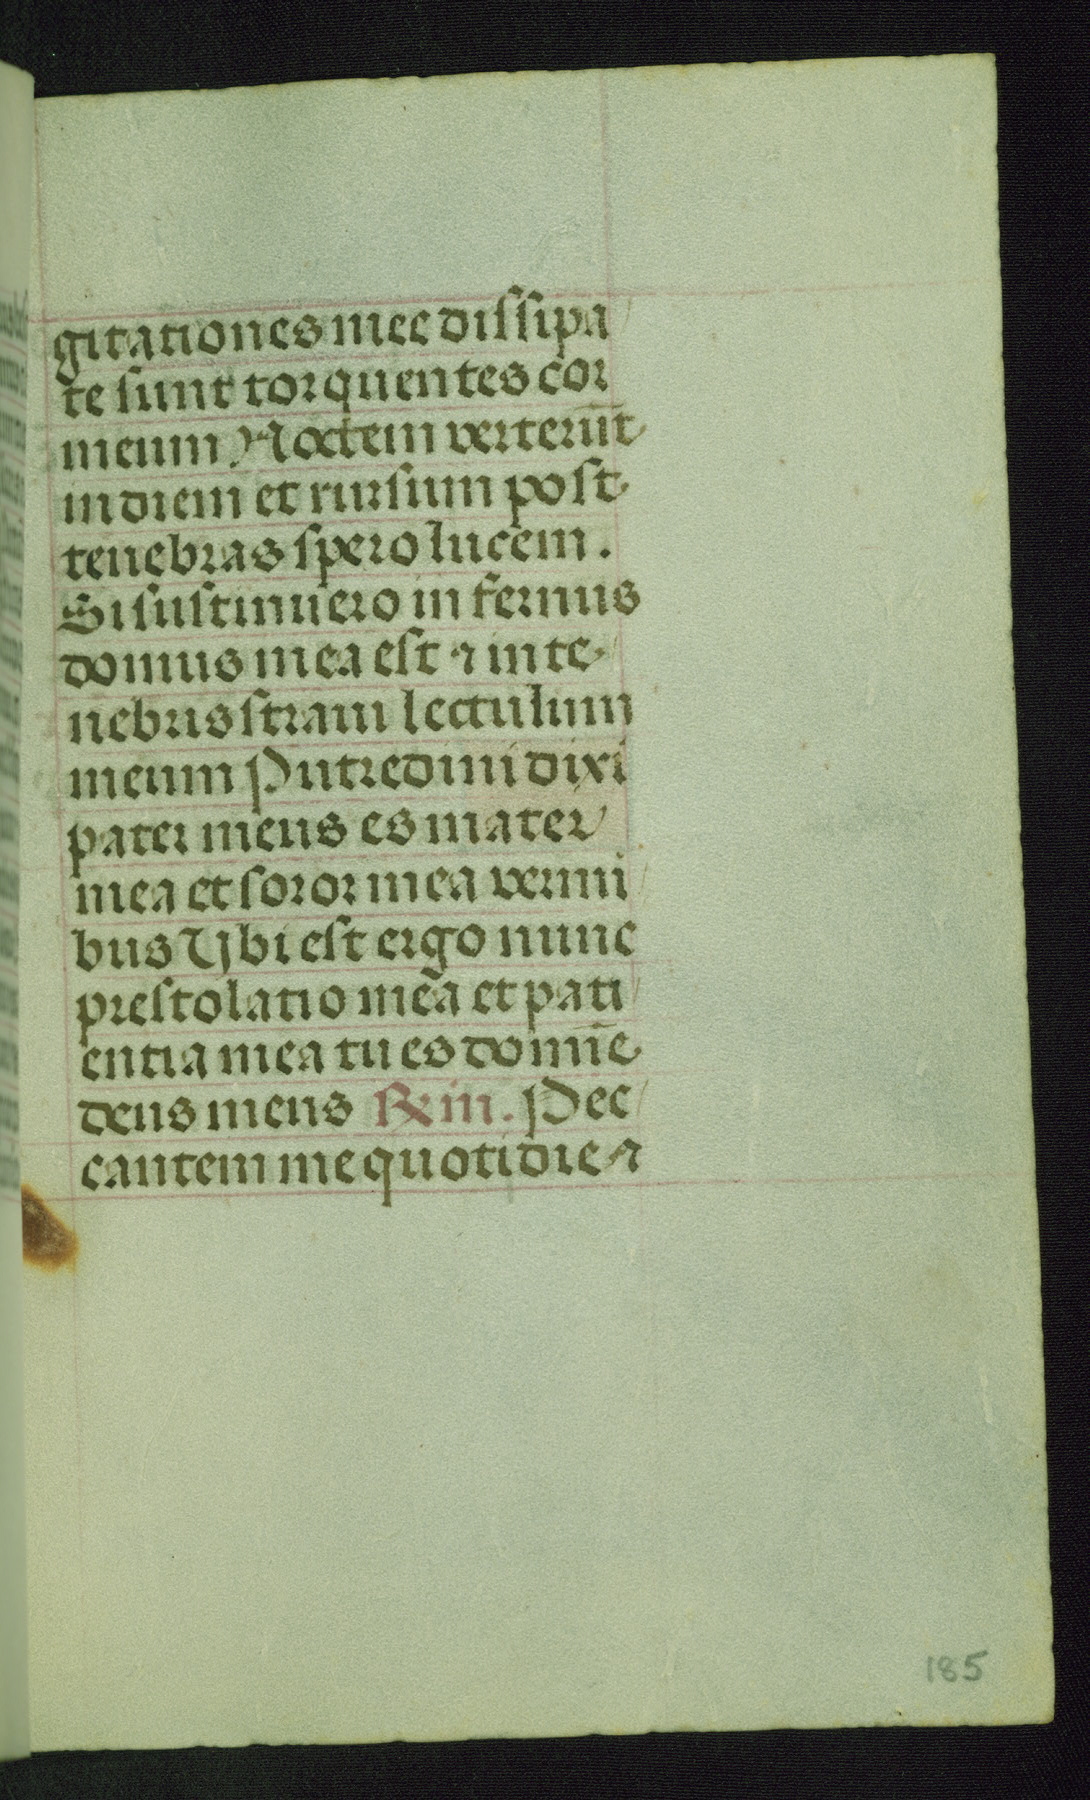 gitationes mee dissipa
te sunt torquentes cor
meum Noctem verterūt
in diem et rursum post
tenebras spero lucem.
Si sustinuero infernus
domus mea est ⁊ in te
nebris straui lectulum
meum Putredini dixi
pater meus es mater
mea et soror mea vermi
bus Vbi est ergo nunc
prestolatio mea et pati
entia mea tu es domīe
deus meus ℟ iii. Pec
cantem me quotidie ⁊
185